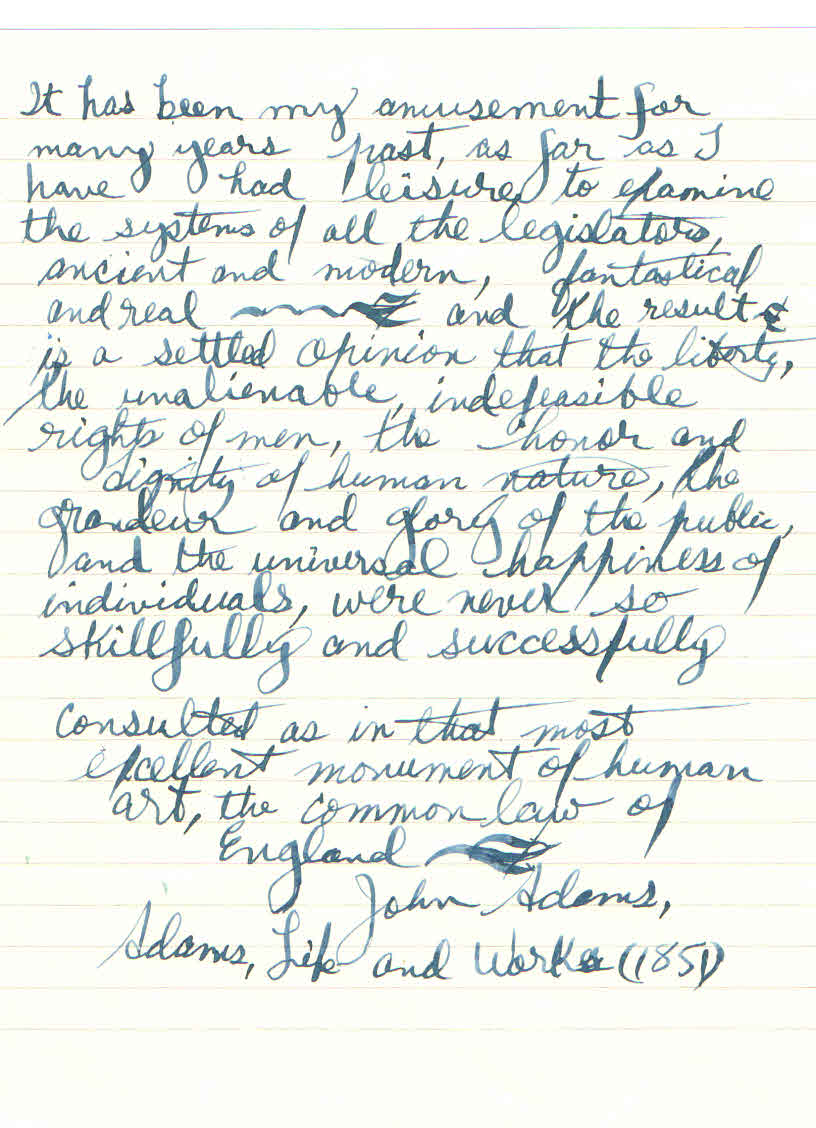 It has been my amusement for
many years past, as far as I
have had leisure, to examine
the systems of all the legislators,
ancient and modern, fantastical
and real and the result
is a settled opinion that the liberty,
the unalienable, indefeasible
rights of men, the honor and
dignity of human nature, the
grandeur and glory of the public,
and the universal happiness of
individuals, were never so
skillfully and successfully
consulted as in that most
excellent monument of human
art, the common law of
England
John Adams,
Adams, Life and Works (1851)